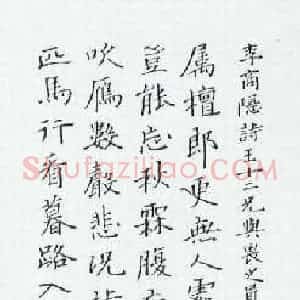 李商隱詩王十二兄與畏之員
屬檀郎更無人處
豈能忘秋霖腹
吹雁數聲悲況
匹馬行看暮路入
Shufaziliao.com